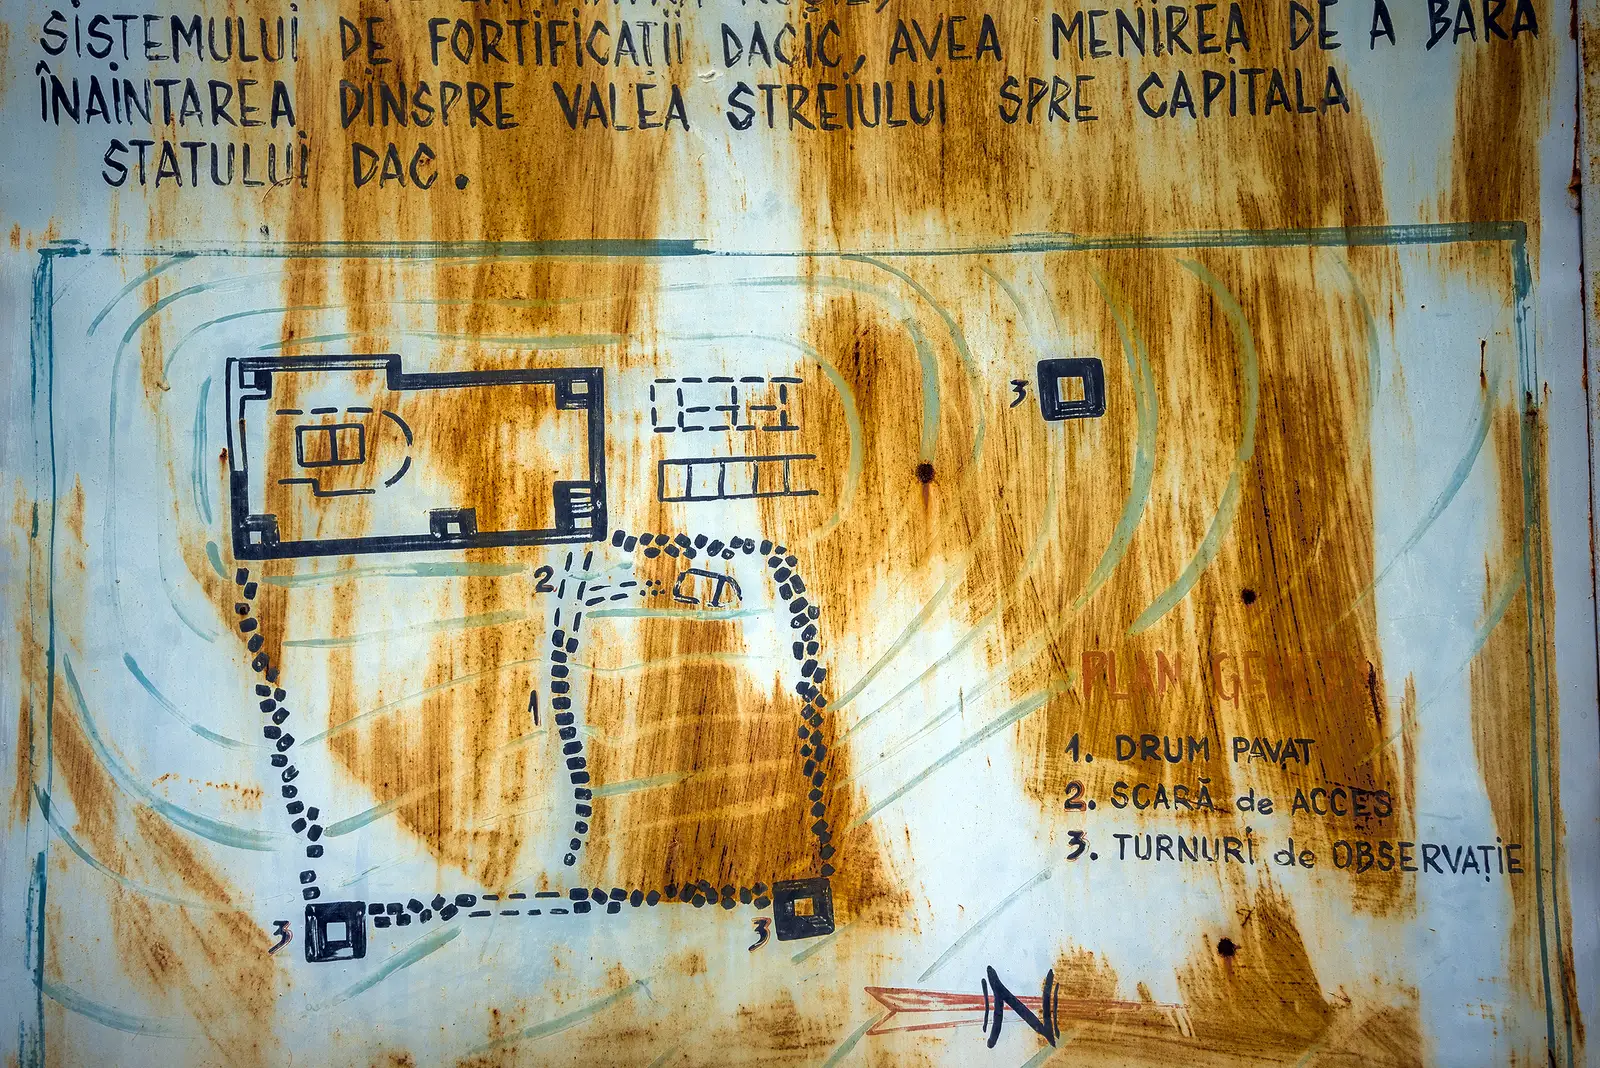 SISTEMULUI DE FORTIFICAȚII DACIC, AVEA MENIREA DE A BARA
ÎNAINTAREA DINSPRE VALEA STREIULUI SPRE CAPITALA
STATULUI DAC.
3
2
1
PLAN
1. DRUM PAVAT
2. SCARĂ de ACCES
3. TURNURI de OBSERVAȚIE
3
3
N